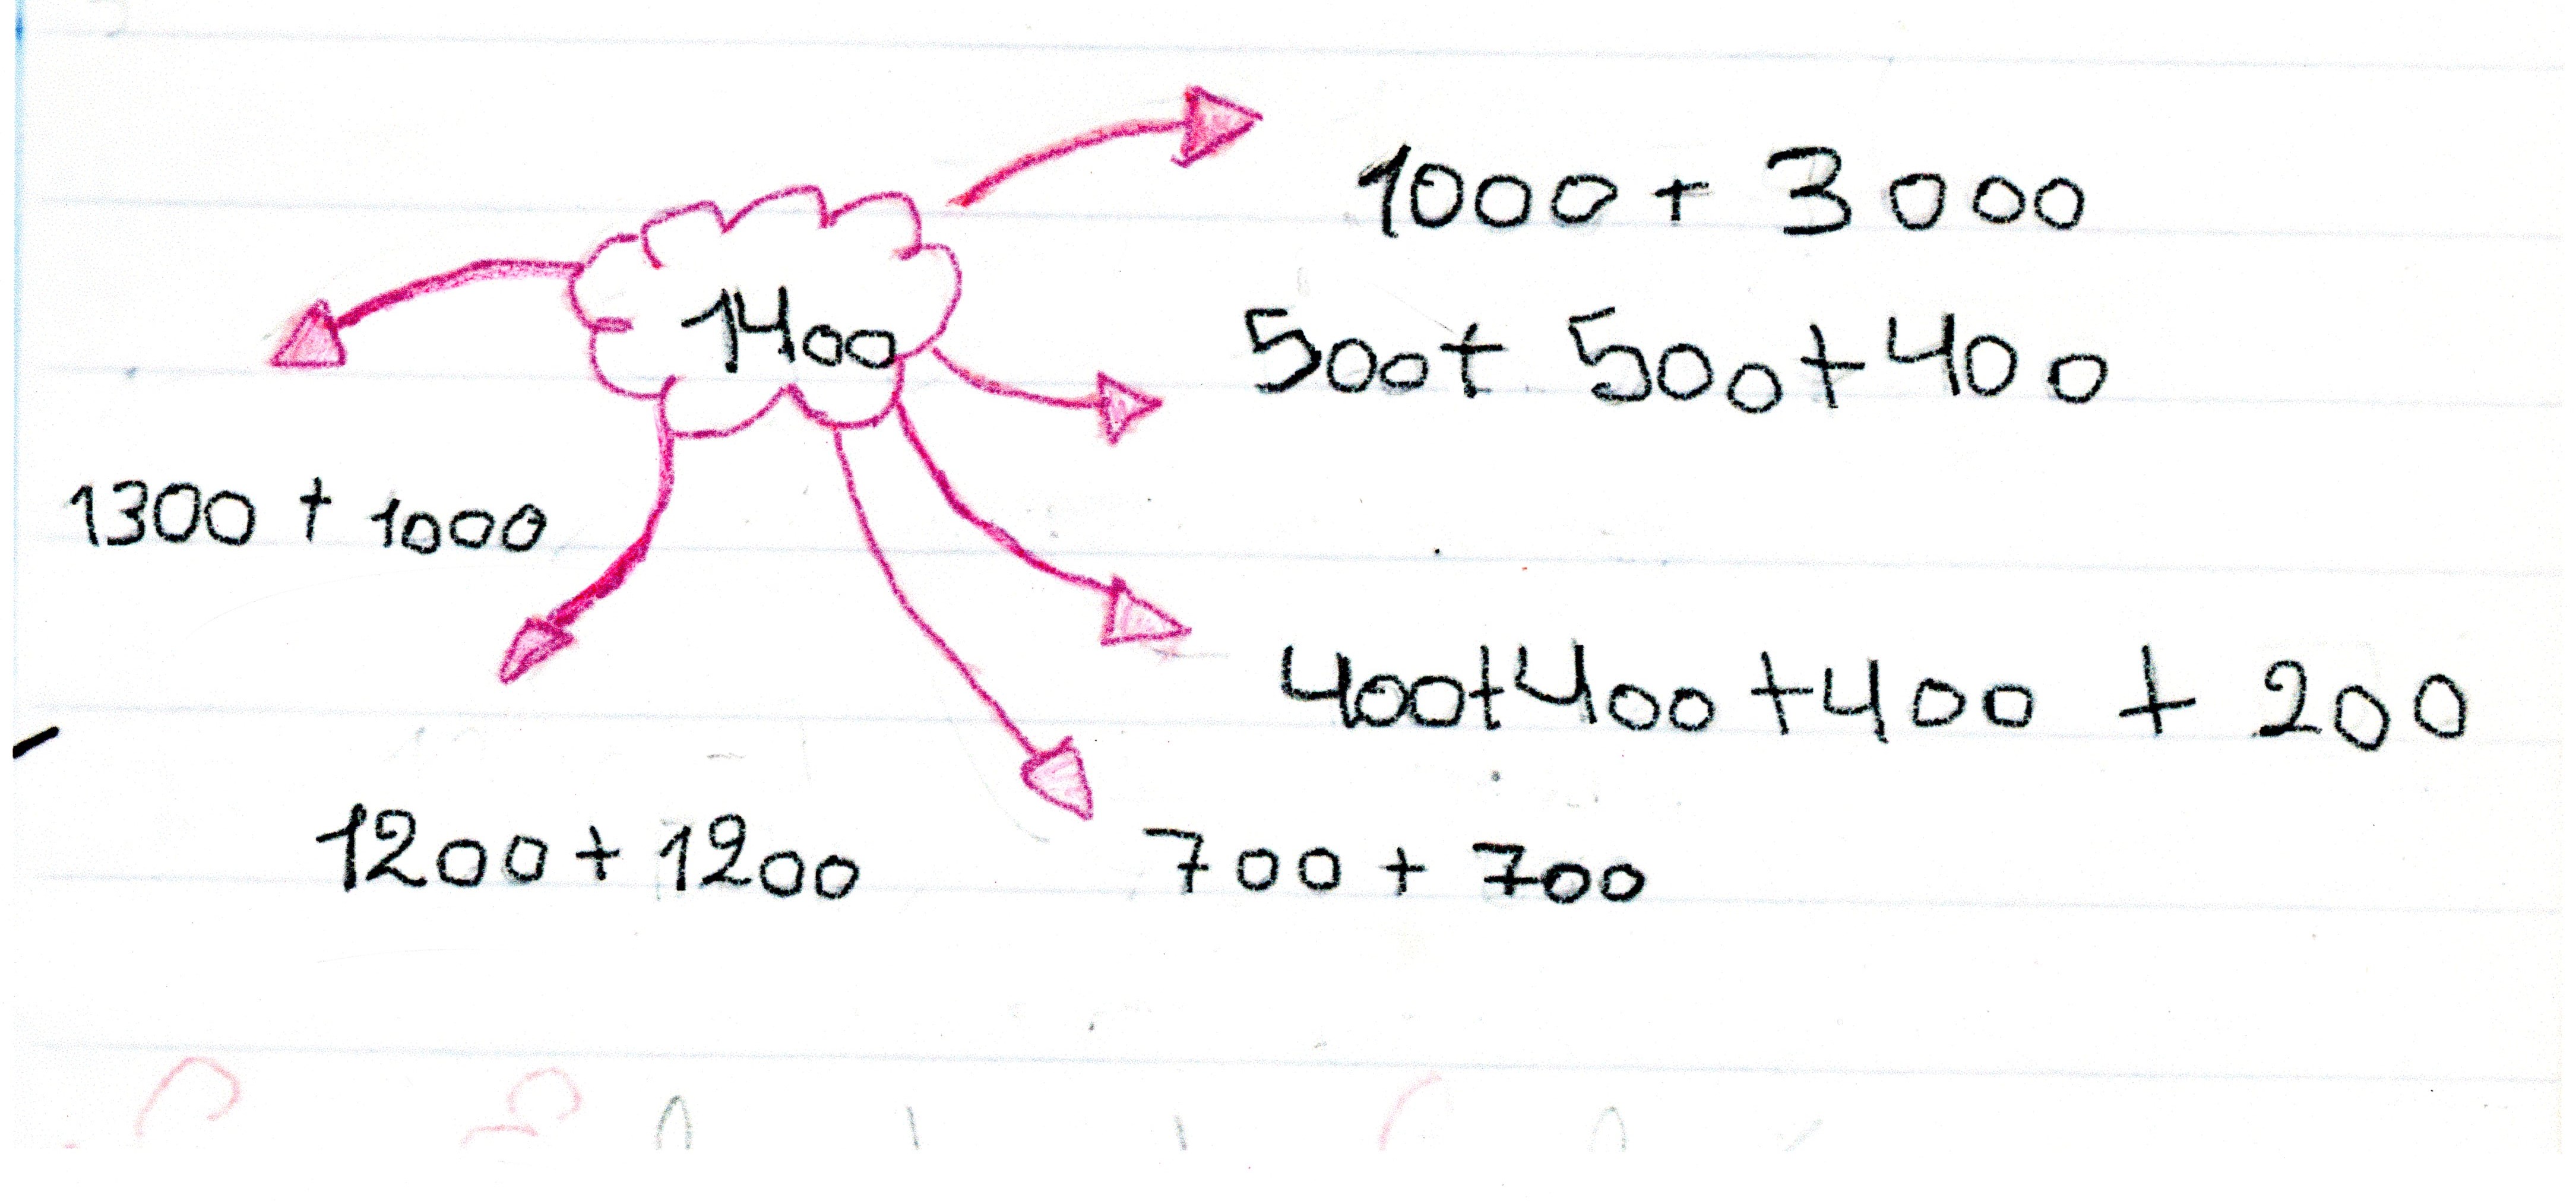 1000 + 3000
1400
500+ 500+400
1300 + 1000
400+400 +400 + 200
1200+1200
700 + 700